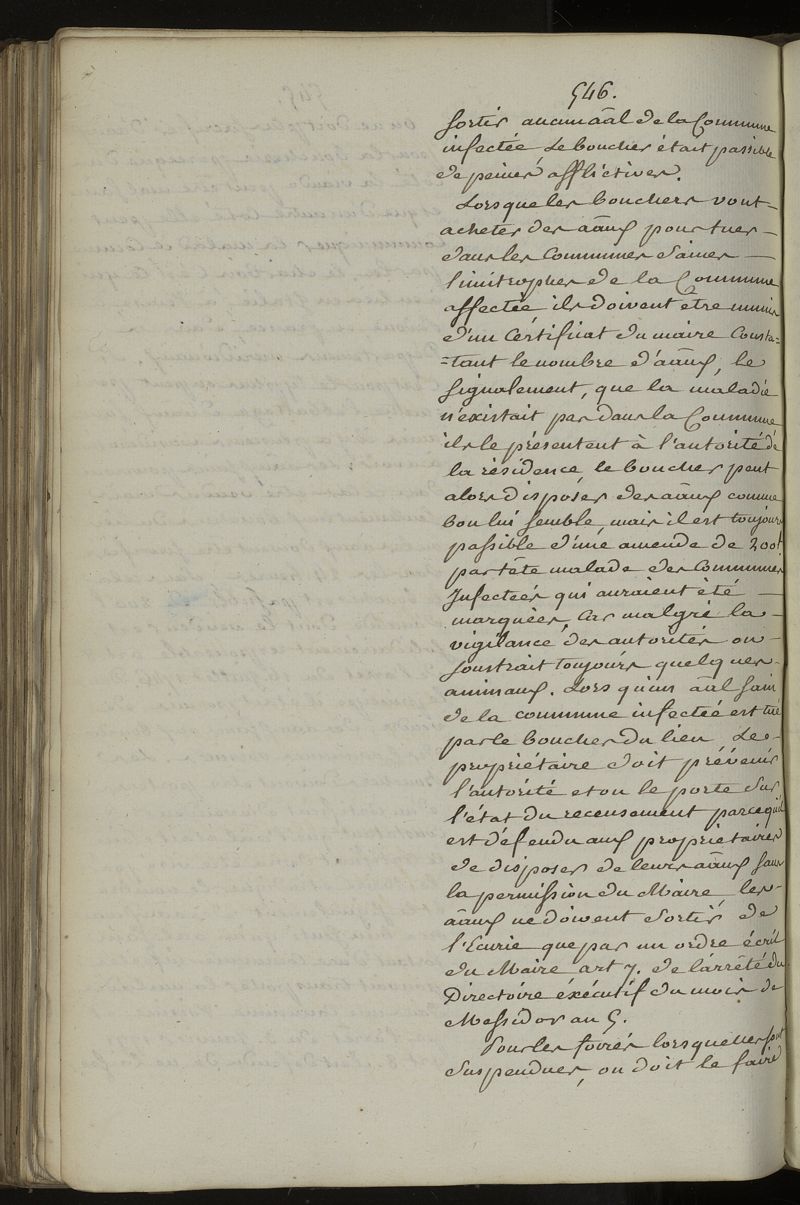 546.
sortir aucun aâl de la Commune
infectée, Le boucher était passible
de peines afflictives.
Lorsque les bouchers vont
acheter des aâux pour tuer
dans les Communes saines
limitrophes de la Commune
affectée ils doivent etre munis
d'un Certificat du maire Consta=
=tant le nombre d'aâux, le
signalement, que la maladie
n'existait pas dans la Commune
ils le présentent à l'autorité de
la résidence, le boucher peut
alors disposer des aâux comme
bon lui semble, mais il est toujours
passible d'une amende de 200f
par tête malade des Communes
Infectées qui auraient été
marquées, Car malgré la
vigilance des autorités on
soustrait toujours quelques
animaux. Lors qu'un aâl sain
de la commune infectée est tué
par le boucher du lieu, Le
propriétaire doit prévenir
l'autorité et on le porte sur
l'état du recensement parcequ'il
est défendu aux propriétaires
de disposer de leurs aâux sans
la permission du Maire, les
aâux ne doivent sortir de
l'Ecurie que par un ordre écrit
du Maire art 7. de l'arrêté du
Directoire éxécutif du mois de
Messidor an 5.
Pour les foires lorsqu'elles sont
suspendues, on doit le faire